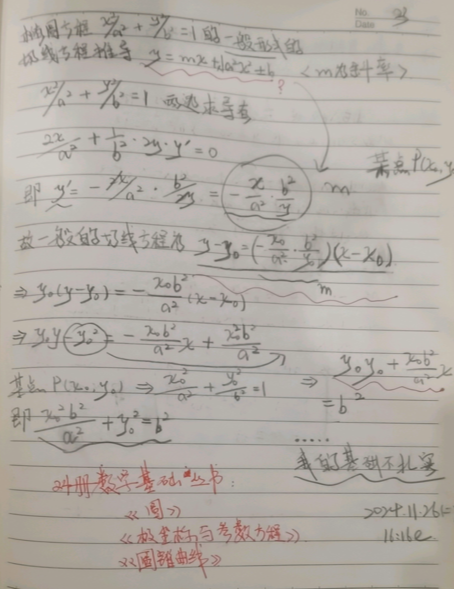 No. 3
Date
椭圆方程 x²/a² + y²/b² = 1 的一般形式的
切线方程推导 y = mx ± √a²x² ± b <m为斜率>
?
x²/a² + y²/b² = 1 两边求导有
2x/a² + 1/b² · 2y · y' = 0
某点P(x₀, y
即 y' = - 2x/a² · b²/2y = - x/a² · b²/y m
故一般的切线方程为 y-y₀ = (- x₀/a² · b²/y₀)(x-x₀)
m
⇒ y₀(y-y₀) = - x₀b²/a² (x-x₀)
⇒ y₀y - y₀² = - x₀b²/a² x + x₀²b²/a²
某点P(x₀, y₀) ⇒ x₀²/a² + y₀²/b² = 1 ⇒ y₀y₀ + x₀b²/a² x
= b²
即 x₀²b²/a² + y₀² = b²
.....
我的基础不扎实
24册数学基础丛书:
《圆》
《极坐标与参数方程》
《圆锥曲线》
2024.11.26
16:16